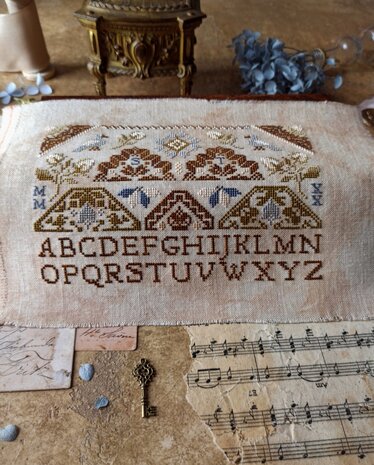 S T
MM XX
ABCDEFGHIJKLMN
OPQRSTUVWXYZ